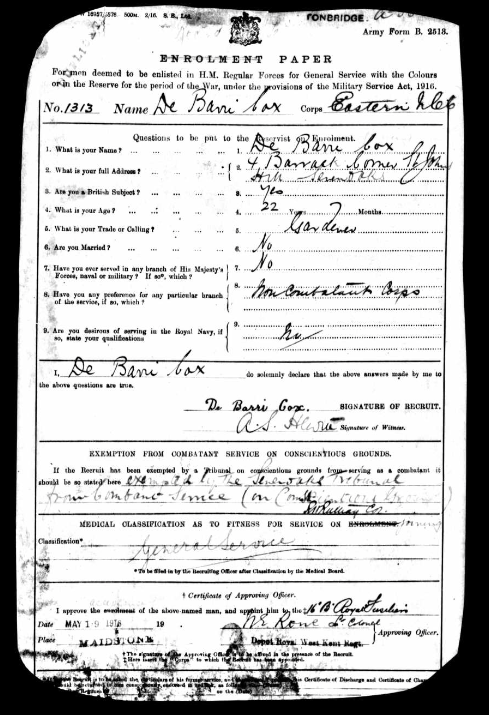 TONBRIDGE.
Army Form B. 2513.
ENROLMENT PAPER
For men deemed to be enlisted in H.M. Regular Forces for General Service with the Colours
or in the Reserve for the period of the War, under the provisions of the Military Service Act, 1916.
No. 1313 Name De Barri Cox Corps Eastern N.C.C.
Questions to be put to the Recruit on Enrolment.
1. What is your Name? ... 1. De Barri Cox
2. What is your full Address? ... 2. 4, Barrack Corner St John
Hill Sevenoaks
3. Are you a British Subject? ... 3. Yes
4. What is your Age? ... 4. 22 Years 7 Months.
5. What is your Trade or Calling? ... 5. Gardener
6. Are you Married? ... 6. No
7. Have you ever served in any branch of His Majesty's 7. No
Forces, naval or military? If so*, which?
8. Have you any preference for any particular branch 8. Non Combatant Corps
of the service, if so, which?
9. Are you desirous of serving in the Royal Navy, if 9. No
so, state your qualifications
I, De Barri Cox do solemnly declare that the above answers made by me to
the above questions are true.
De Barri Cox. SIGNATURE OF RECRUIT.
A.S. Signature of Witness.
EXEMPTION FROM COMBATANT SERVICE ON CONSCIENTIOUS GROUNDS.
If the Recruit has been exempted by a Tribunal on conscientious grounds from serving as a combatant it
should be so stated here exempted by the Sevenoaks Tribunal
from Combatant Service (on Conscientious Grounds)
MEDICAL CLASSIFICATION AS TO FITNESS FOR SERVICE ON ENROLMENT.
Classification* General Service
* To be filled in by the Recruiting Officer after Classification by the Medical Board.
† Certificate of Approving Officer.
I approve the enrolment of the above-named man, and appoint him to the ‡ 16 B. Royal Fusiliers
Date MAY 19 1916 19 .
Approving Officer.
Place MAIDSTONE Depot Royal West Kent Regt.
† The signature of the Approving Officer is to be affixed in the presence of the Recruit.
‡ Here insert the "Corps" to which the Recruit has been appointed.